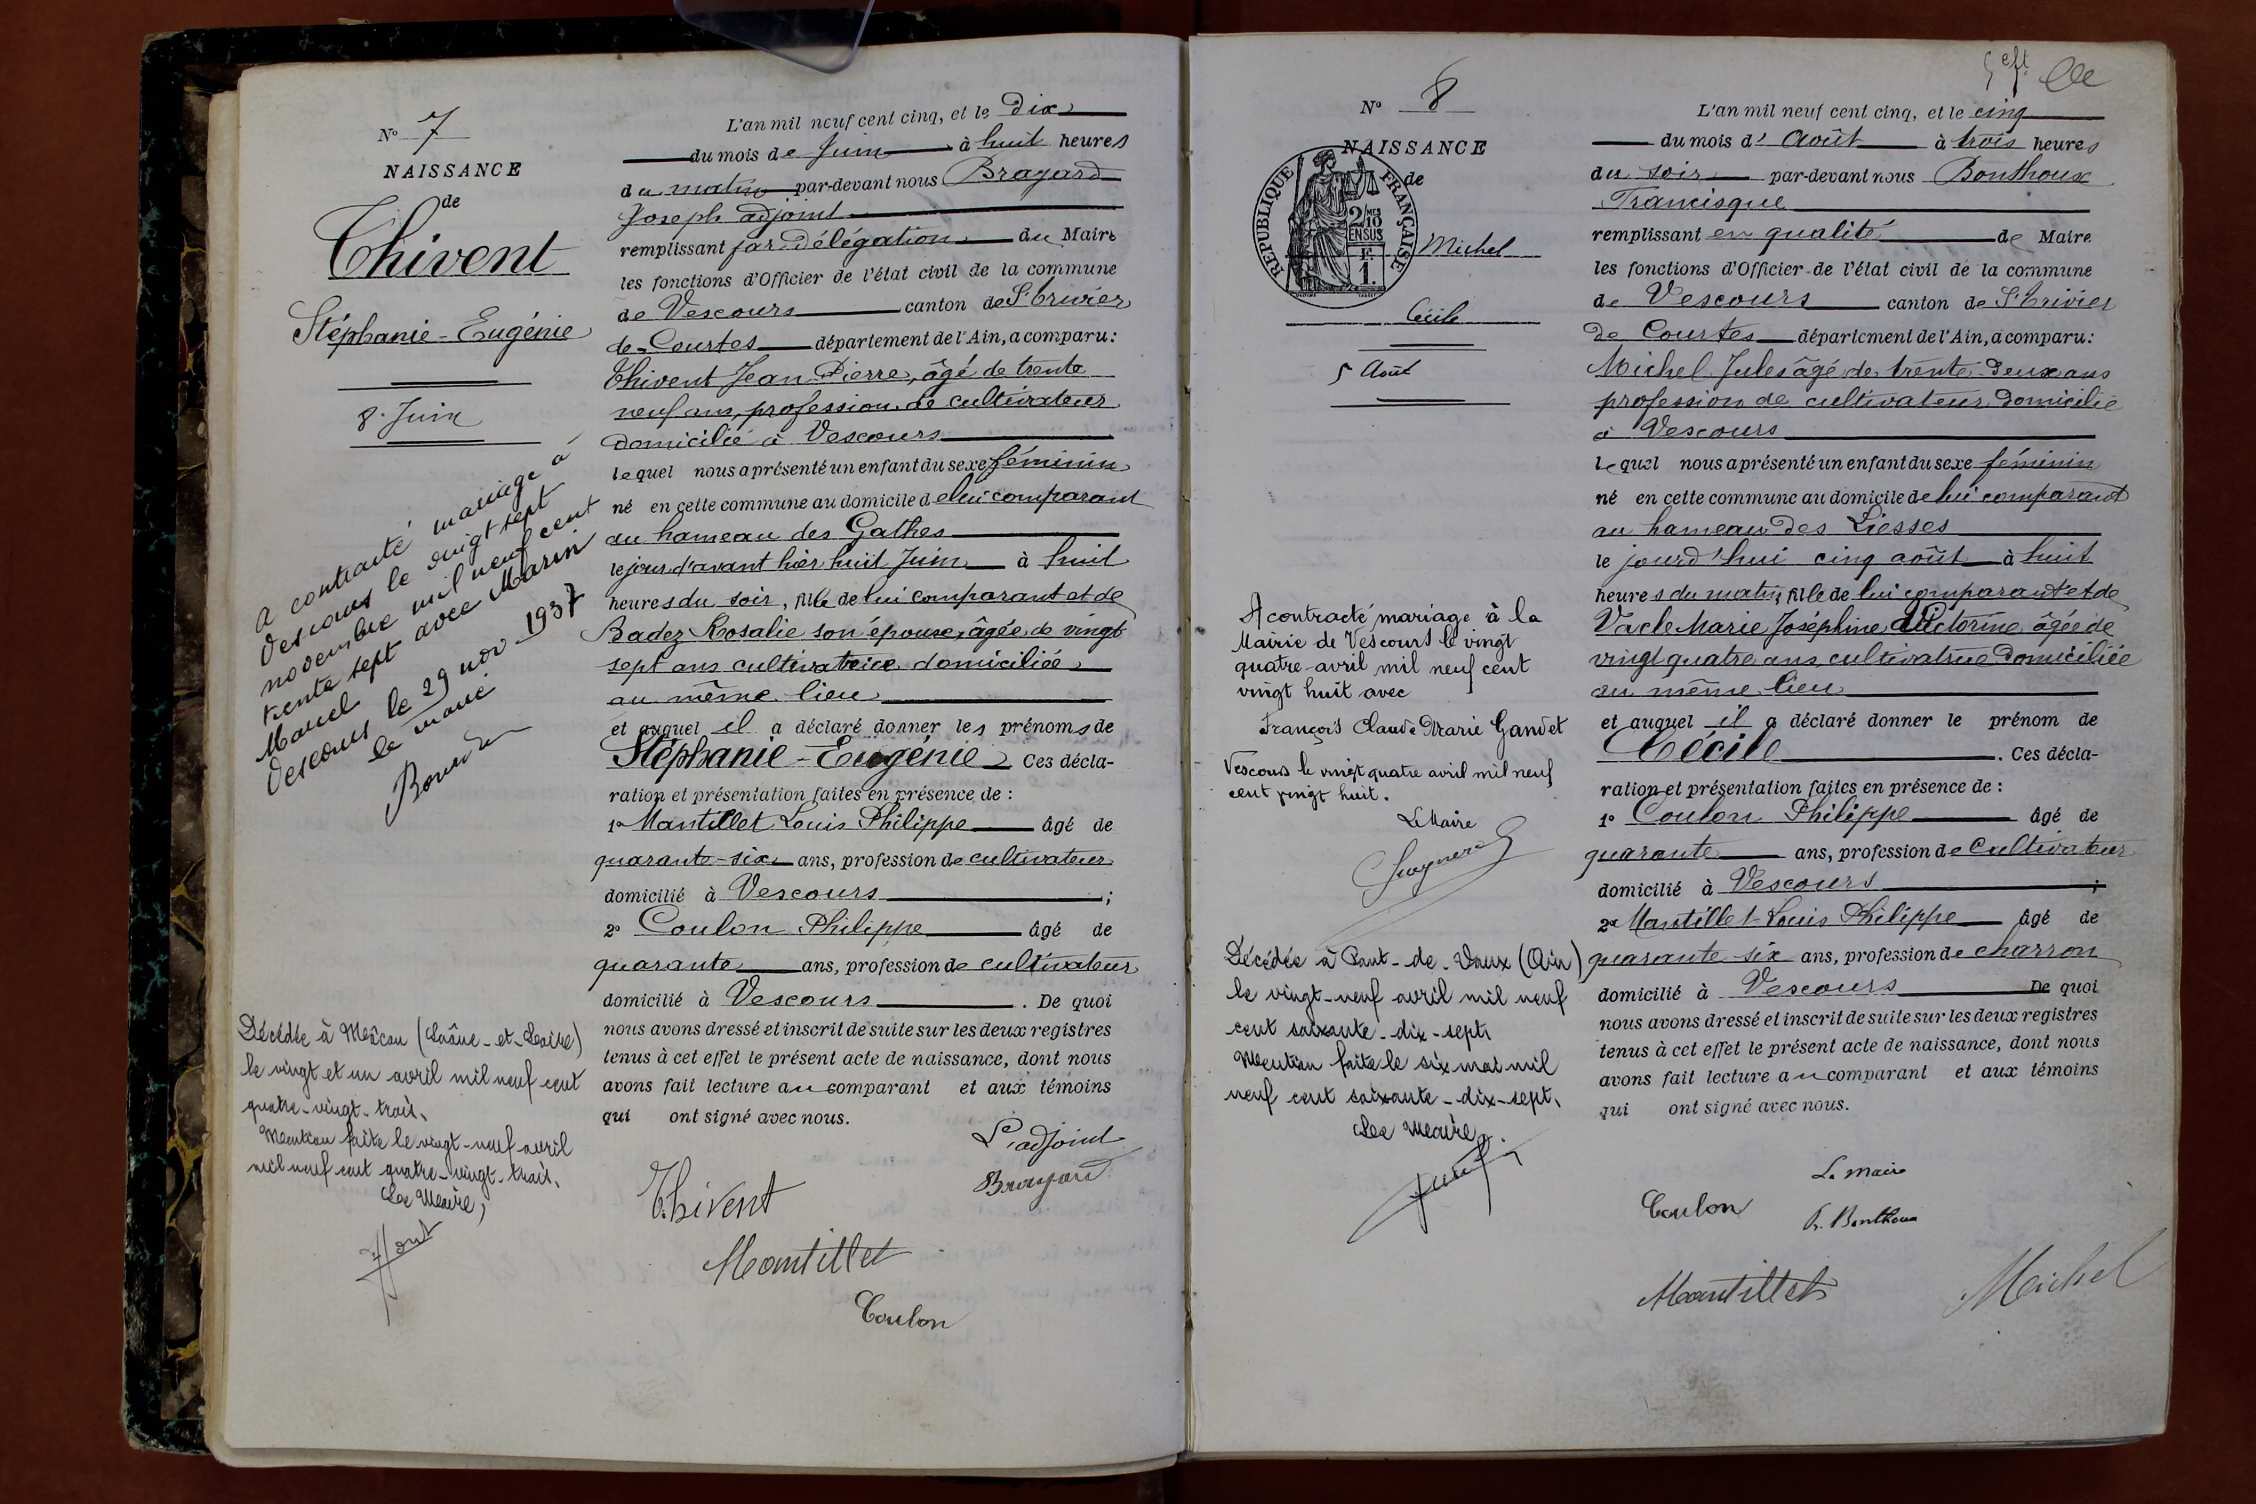 N° 7
NAISSANCE
de
Thivent
Stéphanie - Eugénie
8 Juin
A contracté mariage à
Vescours le vingt sept
novembre mil neuf cent
trente sept avec Marin
Marcel
Vescours le 29 nov 1937
Le maire
Décédée à Mâcon (Saône-et-Loire)
le vingt et un avril mil neuf cent
quatre-vingt-trois.
Mention faite le vingt-neuf avril
mil neuf cent quatre-vingt-trois.
Le Maire,
L'an mil neuf cent cinq, et le Dix
du mois de Juin à huit heures
du matin par-devant nous Brayard
Joseph adjoint
remplissant par délégation du Maire
les fonctions d'Officier de l'état civil de la commune
de Vescours canton de St Trivier
de Courtes département de l'Ain, a comparu:
Thivent Jean Pierre, âgé de trente
neuf ans, profession de cultivateur
domicilié à Vescours
lequel nous a présenté un enfant du sexe féminin
né en cette commune au domicile de lui comparant
au hameau des Gathes
le jour d'avant hier huit Juin à huit
heures du soir, fille de lui comparant et de
Badez Rosalie son épouse, âgée de vingt
sept ans cultivatrice domiciliée
au même lieu
et auquel il a déclaré donner les prénoms de
Stéphanie - Eugénie Ces décla-
ration et présentation faites en présence de :
1° Mantillet Louis Philippe âgé de
quarante-six ans, profession de cultivateur
domicilié à Vescours ;
2° Coulon Philippe âgé de
quarante ans, profession de cultivateur
domicilié à Vescours . De quoi
nous avons dressé et inscrit de suite sur les deux registres
tenus à cet effet le présent acte de naissance, dont nous
avons fait lecture au comparant et aux témoins
qui ont signé avec nous.
L'adjoint
Brayard
Thivent
Mantillet
Coulon
N° 8
NAISSANCE
de
REPUBLIQUE FRANÇAISE
2 MES
10
EN SUS
1 F.
Michel
Cécile
5 Août
A contracté mariage à la
Mairie de Vescours le vingt
quatre avril mil neuf cent
vingt huit avec
François Claude Marie Gandet
Vescours le vingt quatre avril mil neuf
cent vingt huit.
Le Maire
Décédée à Pont-de-Vaux (Ain)
le vingt-neuf avril mil neuf
cent soixante-dix-sept.
Mention faite le six mai mil
neuf cent soixante-dix-sept.
Le Maire,
L'an mil neuf cent cinq, et le cinq
du mois d' Août à trois heures
du soir par-devant nous Bonthoux
Francisque
remplissant en qualité de Maire
les fonctions d'Officier de l'état civil de la commune
de Vescours canton de St Trivier
de Courtes département de l'Ain, a comparu:
Michel Jules âgé de trente-deux ans
profession de cultivateur domicilié
à Vescours
lequel nous a présenté un enfant du sexe féminin
né en cette commune au domicile de lui comparant
au hameau des Liesses
le jourd'hui cinq août à huit
heures du matin, fille de lui comparant et de
Vacle Marie Joséphine Victorine âgée de
vingt quatre ans cultivatrice domiciliée
au même lieu
et auquel il a déclaré donner le prénom de
Cécile . Ces décla-
ration et présentation faites en présence de :
1° Coulon Philippe âgé de
quarante ans, profession de Cultivateur
domicilié à Vescours ;
2° Mantillet Louis Philippe âgé de
quarante-six ans, profession de charron
domicilié à Vescours De quoi
nous avons dressé et inscrit de suite sur les deux registres
tenus à cet effet le présent acte de naissance, dont nous
avons fait lecture au comparant et aux témoins
qui ont signé avec nous.
Le Maire
Coulon Fr. Bonthoux
Mantillet Michel